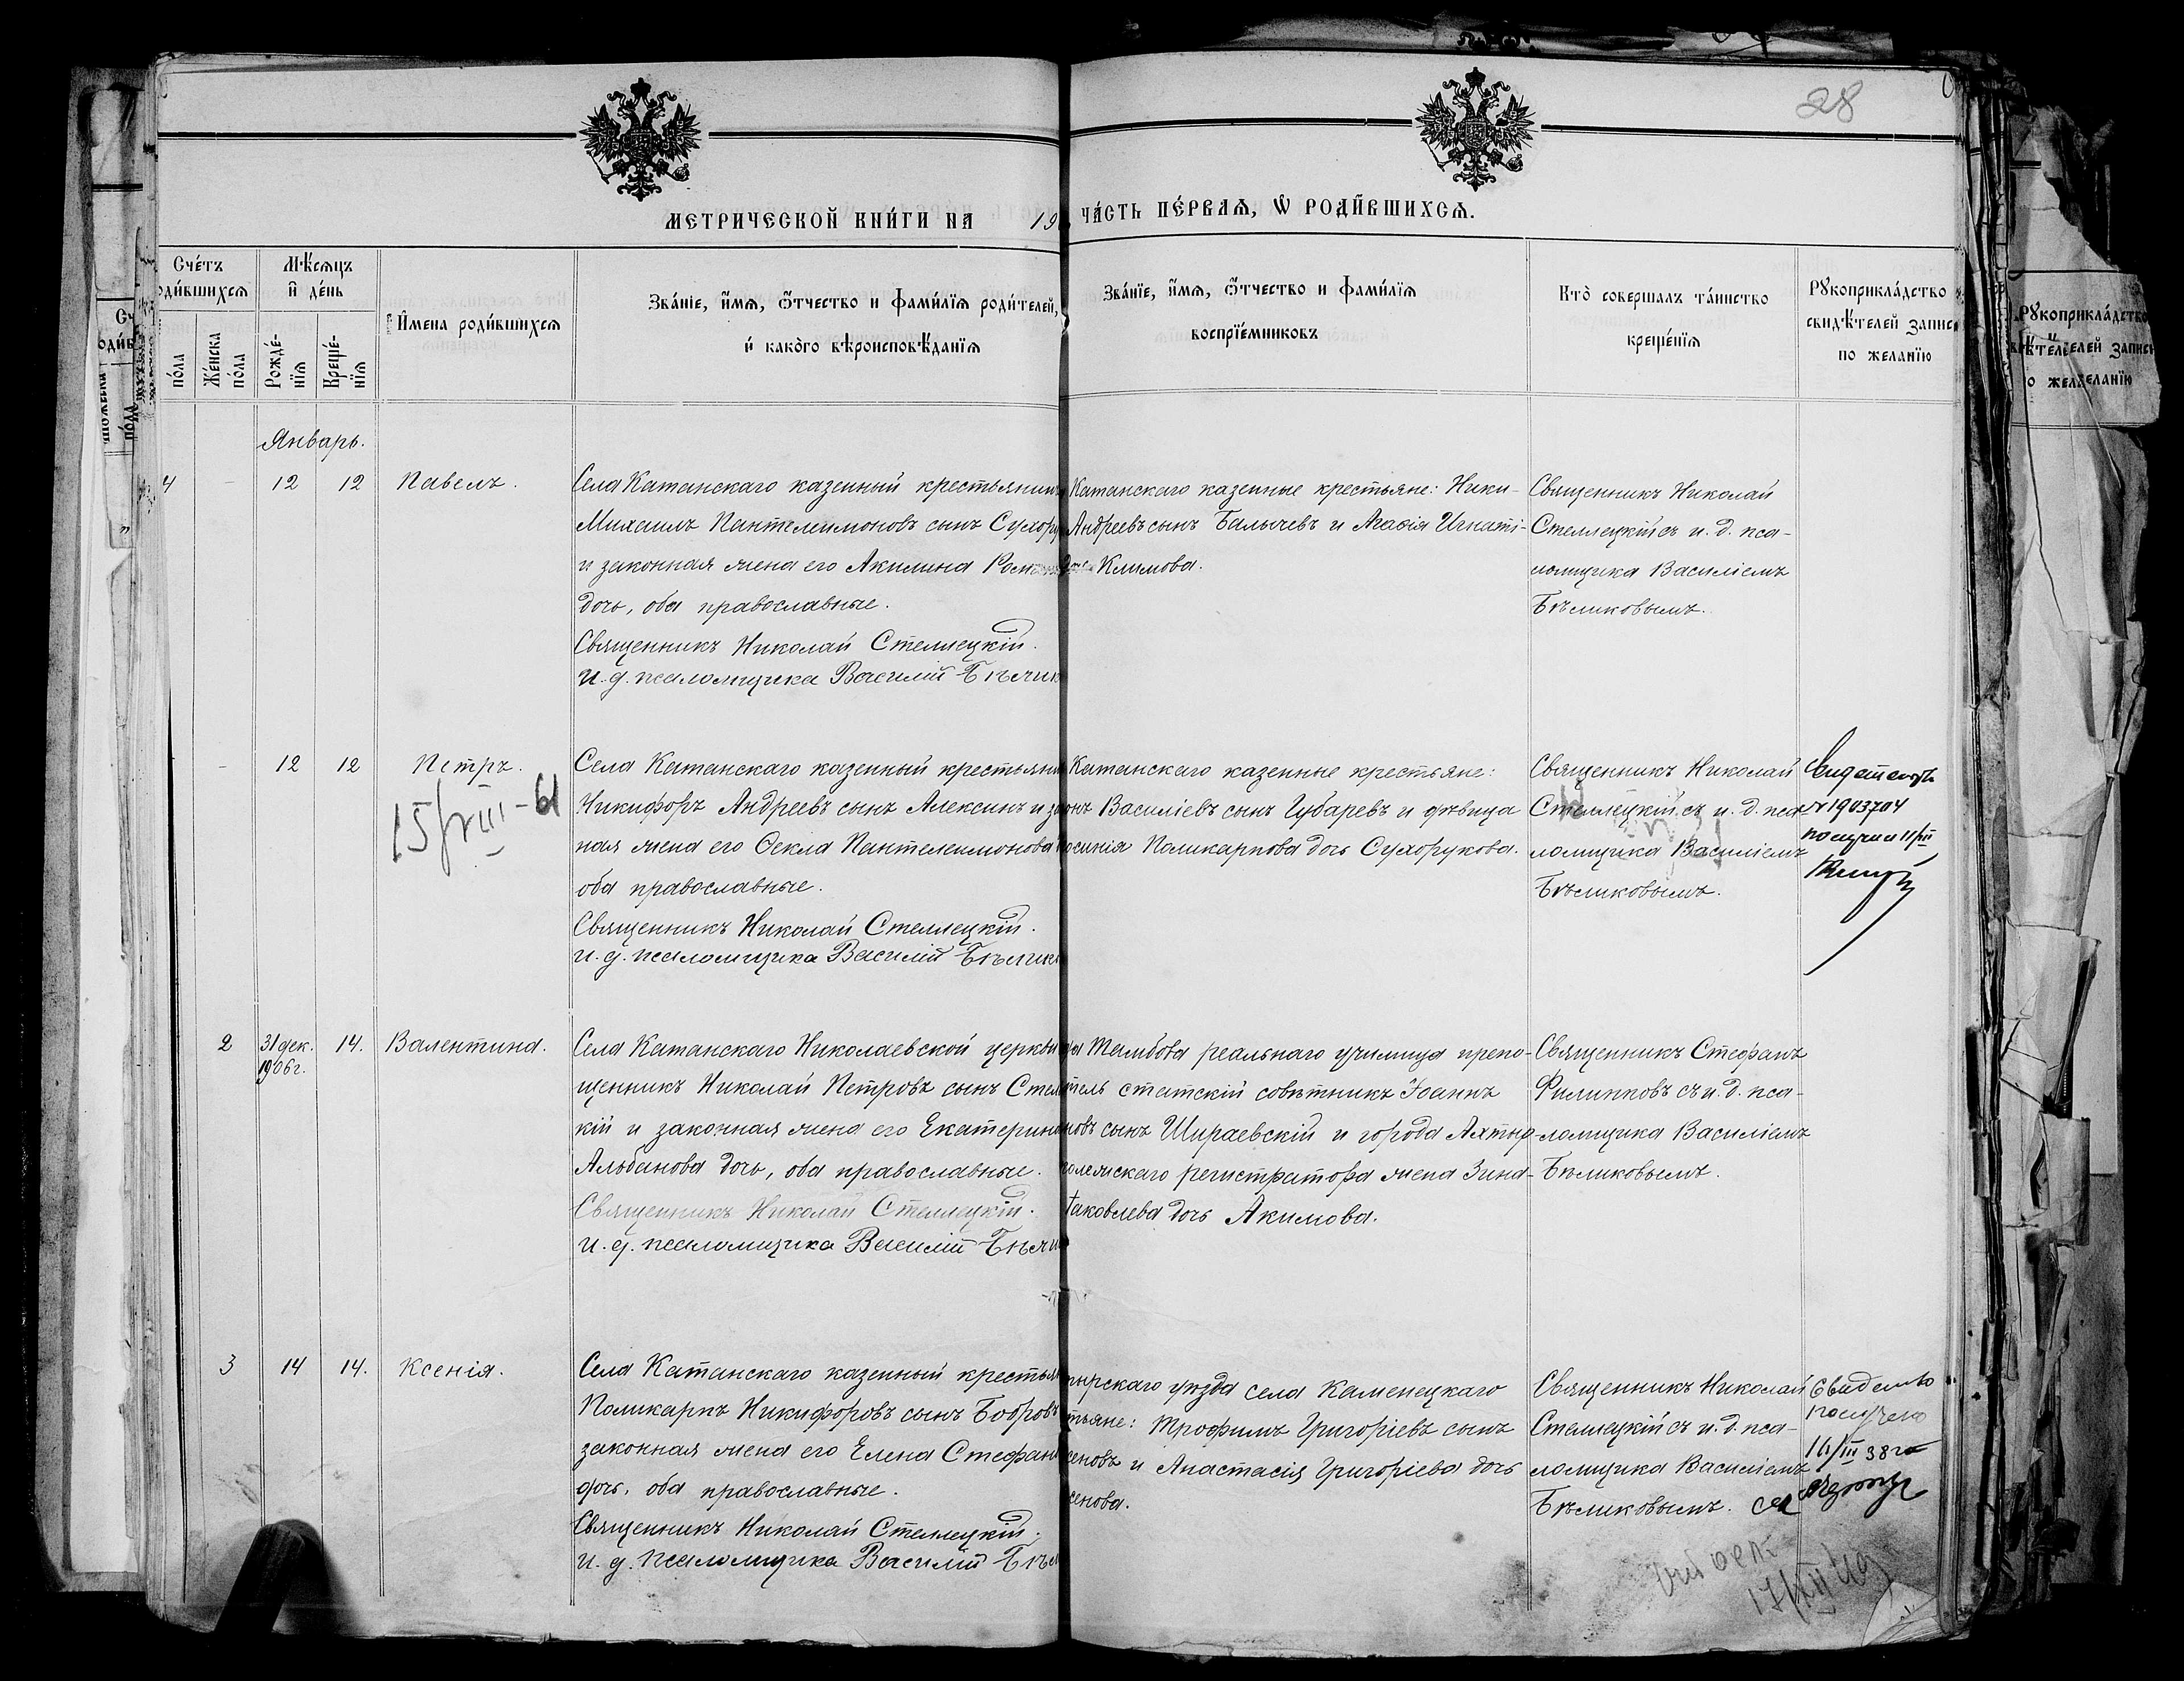 28
МЕТРИЧЕСКОЙ КНИ́ГИ НА 19
ЧА́СТЬ ПЕ́РВАѦ, Ѡ РОДИ́ВШИХСѦ.
Сче́тъ
оди́вшихсѧ
Мѣ́сѧцъ
и҆ де́нь
по́ла
Же́нска
по́ла
Рожде́-
нїѧ
Креще́-
нїѧ
И҆мена роди́вшихсѧ
Зва́нїе, и҆́мѧ, ѻ҆́тчество и фами́лїѧ роди́телей,
и҆ како́го вѣроисповѣ́данїѧ
Зва́нїе, и҆́мѧ, ѻ҆́тчество и фами́лїѧ
воспрїе́мниковъ
Кто̀ совершалъ та́инство
креще́нїѧ
Рꙋкоприкла́дство
свидѣ́телей запис
по жела́нїю
Январь.
4 - 12 12 Павелъ.
Села Катанскаго казенный крестьянинъ
Михаилъ Пантелеимоновъ сынъ Сухору
и законная жена его Акилина Роман
дочь, оба православные.
Священникъ Николай Стеллецкій.
и. д. псаломщика Василій Бѣлик
Катанскаго казенные крестьяне: Ники-
Андреевъ сынъ Балычевъ и Агафія Игнаті-
Климова.
Священникъ Николай
Стеллецкій съ и. д. пса-
ломщика Василіемъ
Бѣликовымъ.
- 12 12 Петръ.
15/VIII-61
Села Катанскаго казенный крестьяни
Никифоръ Андреевъ сынъ Алексинъ и за
ная жена его Ѳекла Пантелеимонова
оба православные.
Священникъ Николай Стеллецкій.
и. д. псаломщика Василій Бѣлик
Катанскаго казенные крестьяне:
Василіевъ сынъ Губаревъ и дѣвица
Поликарпова дочь Сухорукова.
Священникъ Николай
Стеллецкій съ и. д. пса-
ломщика Василіемъ
Бѣликовымъ.
1903704
получил 11/VII
2 31 дек. 14. Валентина.
1906 г.
Села Катанскаго Николаевской церкви
щенникъ Николай Петровъ сынъ Стел
кій и законная жена его Екатерина
Альбанова дочь, оба православные.
Священникъ Николай Стеллецкій.
и. д. псаломщика Василій Бѣли
да Тамбова реальнаго училища препо-
тель статскій совѣтникъ Іоаннъ
новъ сынъ Шираевскій и города Ахтыр-
колежскаго регистратора жена Зина-
Іаковлева дочь Акимова.
Священникъ Стефанъ
Филипповъ съ и. д. пса-
ломщика Василіемъ
Бѣликовымъ.
3 14 14. Ксенія.
Села Катанскаго казенный крестьян
Поликарпъ Никифоровъ сынъ Бобровъ
законная жена его Елена Стефан
дочь, оба православные.
Священникъ Николай Стеллецкій.
и. д. псаломщика Василій Бѣл
тырскаго уѣзда села Каменецкаго
тьяне: Трофимъ Григоріевъ сынъ
сеновъ и Анастасія Григоріева дочь
сенова.
Священникъ Николай
Стеллецкій съ и. д. пса-
ломщика Василіемъ
Бѣликовымъ.
получено
16/III 38 г
17/XII